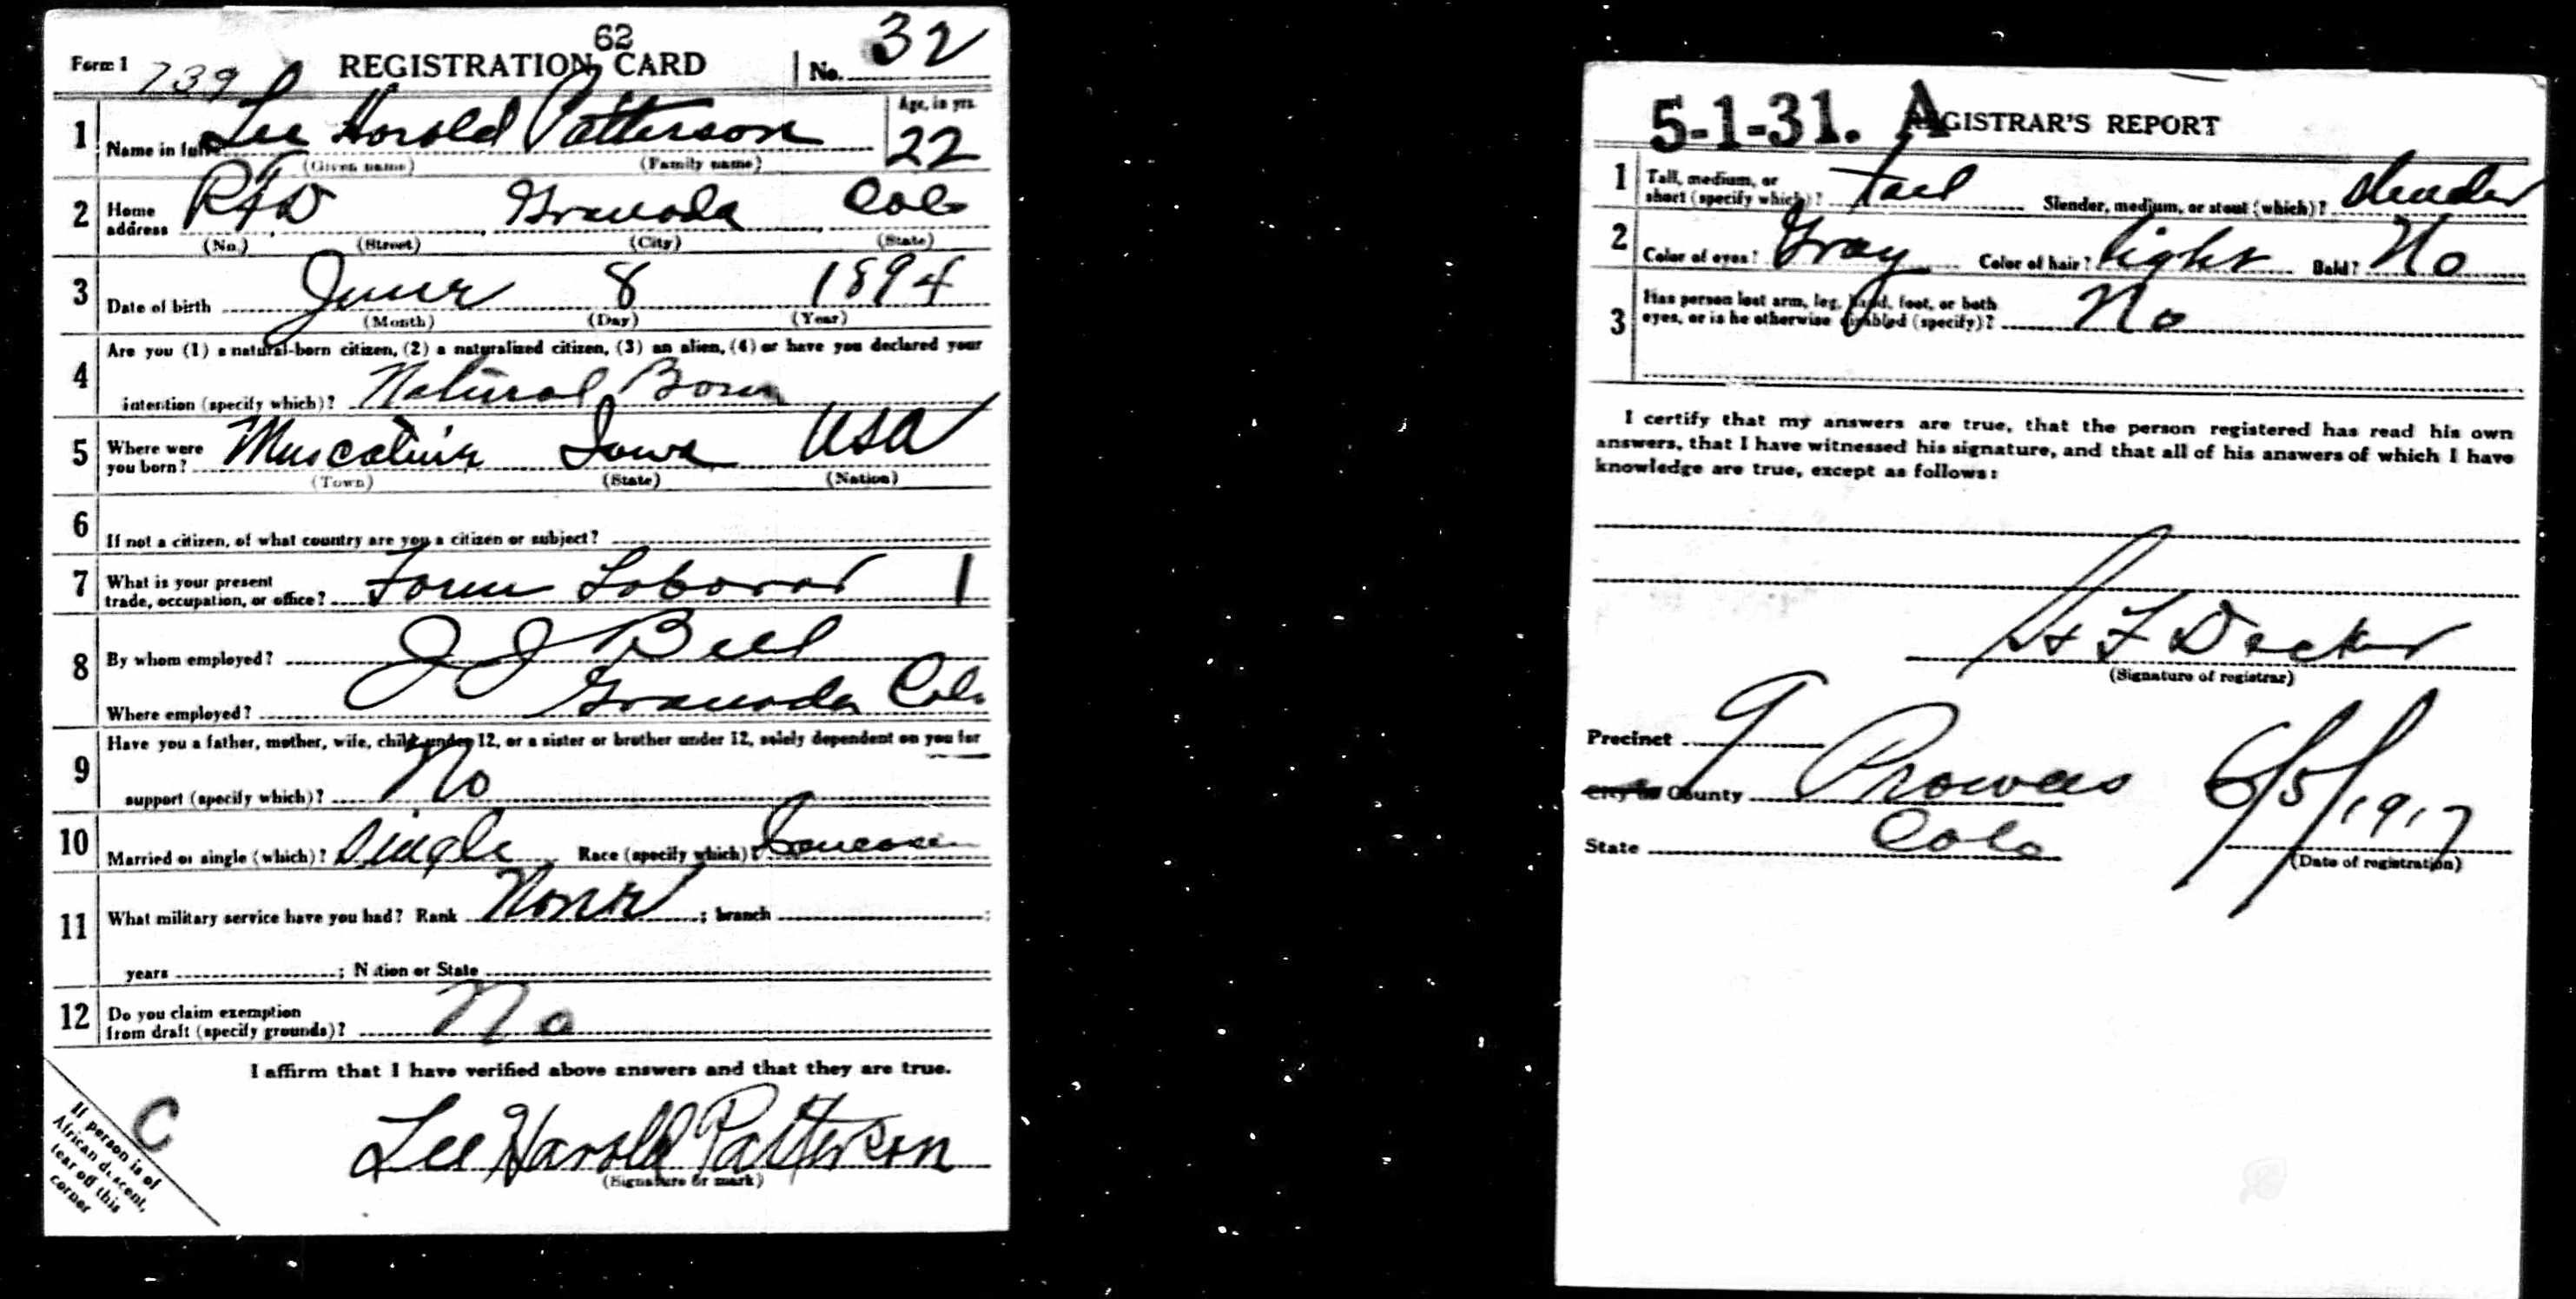 62
Form 1 739 REGISTRATION CARD No. 32
1 Name in full Lee Harold Patterson Age, in yrs. 22
(Given name) (Family name)
2 Home address RFD Granada Colo
(No.) (Street) (City) (State)
3 Date of birth June 8 1894
(Month) (Day) (Year)
Are you (1) a natural-born citizen, (2) a naturalized citizen, (3) an alien, (4) or have you declared your
4 intention (specify which)? Natural Born
5 Where were you born? Muscatine Iowa USA
(Town) (State) (Nation)
6 If not a citizen, of what country are you a citizen or subject?
7 What is your present trade, occupation, or office? Farm Laborer 1
8 By whom employed? J J Bell
Where employed? Granada Colo
Have you a father, mother, wife, child under 12, or a sister or brother under 12, solely dependent on you for
9 support (specify which)? No
10 Married or single (which)? Single Race (specify which)?
11 What military service have you had? Rank None ; branch ;
years ; Nation or State
12 Do you claim exemption from draft (specify grounds)? No
I affirm that I have verified above answers and that they are true.
Lee Harold Patterson
(Signature or mark)
C
If person is of
African descent,
tear off this
corner
5-1-31. A REGISTRAR'S REPORT
1 Tall, medium, or short (specify which)? tall Slender, medium, or stout (which)? slender
2 Color of eyes? Gray Color of hair? light Bald? No
3 Has person lost arm, leg, hand, foot, or both eyes, or is he otherwise disabled (specify)? No
I certify that my answers are true, that the person registered has read his own
answers, that I have witnessed his signature, and that all of his answers of which I have
knowledge are true, except as follows:
F Decker
(Signature of registrar)
Precinct 9
City or County Prowers 6/5/1917
State Colo (Date of registration)